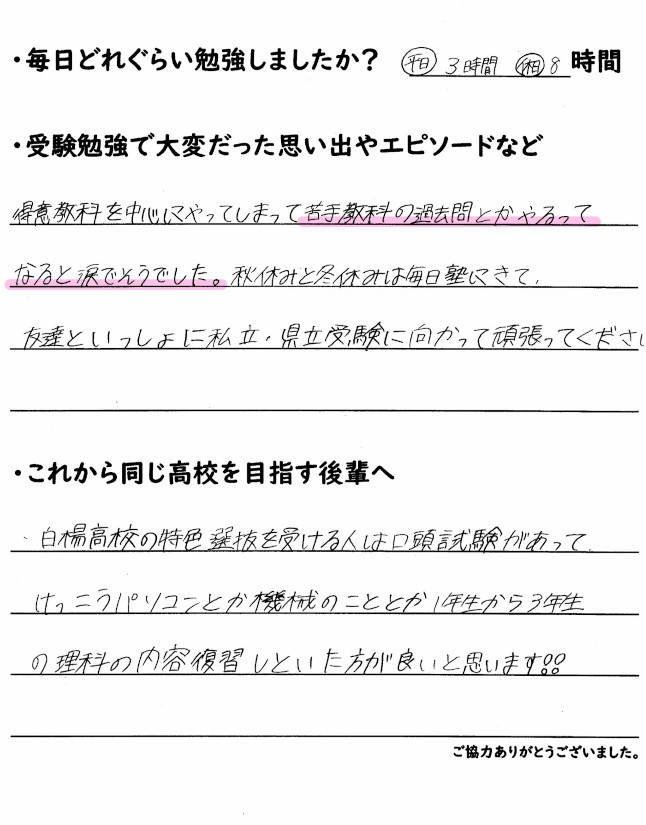 ・毎日どれぐらい勉強しましたか？ 平日 3時間 休日 8 時間
・受験勉強で大変だった思い出やエピソードなど
得意教科を中心にやってしまって苦手教科の過去問とかやるって
なると涙でそうでした。秋休みと冬休みは毎日塾にきて、
友達といっしょに私立・県立受験に向かって頑張ってくださ
・これから同じ高校を目指す後輩へ
・白楊高校の特色選抜を受ける人は口頭試験があって、
けっこうパソコンとか機械のこととか1年生から3年生
の理科の内容復習しといた方が良いと思います!!
ご協力ありがとうございました。